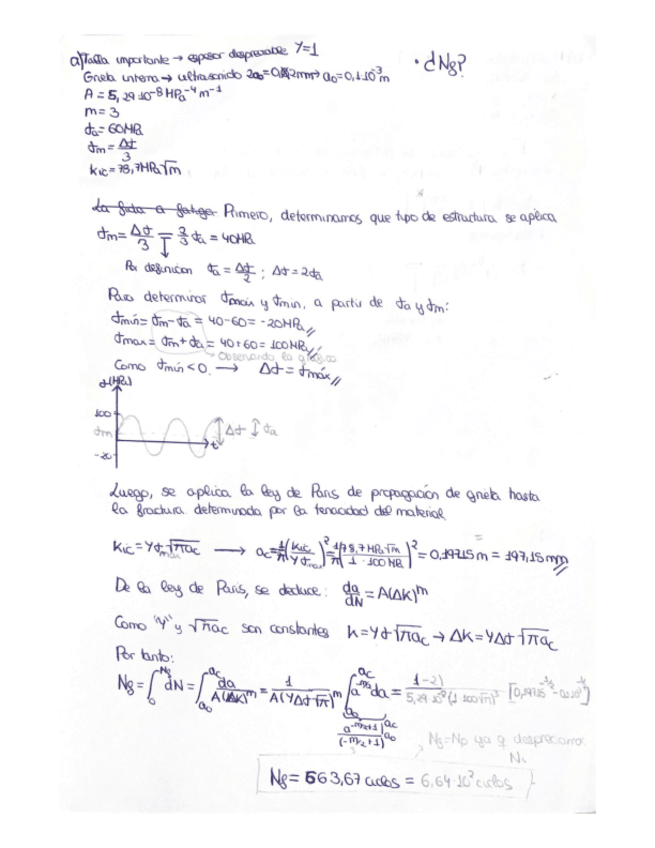 a) Talla importante → espesor despreciable Y=1
• dNf?
Grieta interna → ultrasonido 2a₀=0,2mm→ a₀=0,1·10⁻³m
A = 5,29·10⁻⁸ MPa⁻⁴m⁻¹
m = 3
σa = 60MPa
σm = Δσ/3
KIC = 78,7MPa√m
Primero, determinamos que tipo de estructura se aplica
σm = Δσ/3 = 2/3 σa = 40MPa
Por definición σa = Δσ/2 ; Δσ = 2σa
Para determinar σmáx y σmin, a partir de σa y σm:
σmín = σm - σa = 40-60 = -20MPa
σmax = σm + σa = 40+60 = 100MPa
Observando la gráfica
Como σmín < 0 → Δσ = σmáx
σ(MPa)
100
σm
-20
t
Δσ σa
Luego, se aplica la ley de Paris de propagación de grieta hasta
la fractura determinada por la tenacidad del material
KIC = Yσmax√πac → ac = 1/π (KIC / Yσmax)² = 1/π (78,7 MPa√m / 1·100MPa)² = 0,19715 m = 197,15 mm
De la ley de Paris, se deduce: da/dN = A(ΔK)^m
Como "Y" y √πac son constantes K = Yσ√πac → ΔK = YΔσ√πac
Por tanto:
Nf = ∫₀^Nf dN = ∫a₀^ac da / A(ΔK)^m = 1 / A(YΔσ√π)^m ∫a₀^ac a^-m/2 da =
a^(-m/2+1) / (-m/2+1) |a₀^ac
Nf = Np ya q despreciamos
Ni
Nf = 663,67 ciclos = 6,64·10² ciclos